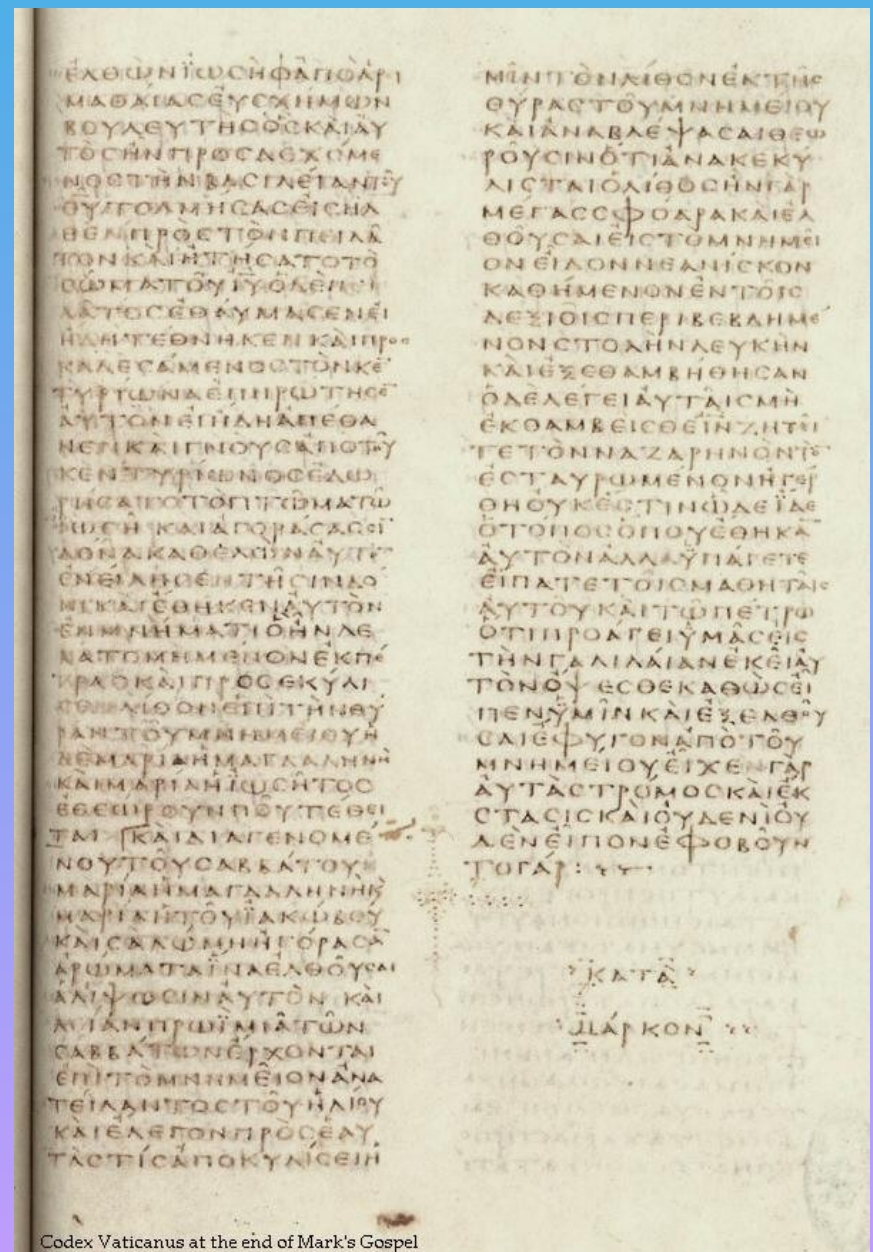 ἐλθὼν ϊωσὴφ ἀπὸ ἀρι
μαθαίας εὐσχήμων
βουλευτὴς ὃς καὶ αὐ
τὸς ἦν προσδεχόμε
νος τὴν βασιλείαν τοῦ
θ̅υ̅ τολμήσας εἰσῆλ
θεν πρὸς τὸν πειλᾶ
τον καὶ ᾐτήσατο τὸ
σῶμα τοῦ ι̅υ̅ ὁ δὲ πει
λᾶτος ἐθαύμασεν εἰ
ἤδη τέθνηκεν καὶ προσ
καλεσάμενος τὸν κε̅
τυρίωνα ἐπηρώτησε̅
αὐτὸν εἰ ἤδη ἀπέθα
νεν καὶ γνοὺς ἀπὸ τοῦ
κεντυρίωνος ἐδω
ρήσατο τὸ πτῶμα τῷ
ϊωσὴ καὶ ἀγοράσας σι̅
δόνα καθελὼν αὐτὸ̅
ἐνείλησεν τῇ σινδό
νι καὶ ἔθηκεν αὐτὸν
ἐν μνήματι ὃ ἦν λε
λατομημένον ἐκ πέ
τρας καὶ προσεκύλι
σεν λίθον ἐπὶ τὴν θύ
ραν τοῦ μνημείου ἡ
δὲ μαρία ἡ μαγδαληνὴ
καὶ μαρία ἡ ϊωσῆτος
ἐθεώρουν ποῦ τέθει
ται καὶ διαγενομέ
νου τοῦ σαββάτου
μαρία ἡ μαγδαληνὴ κ̀
μαρία ἡ τοῦ ϊακώβου
καὶ σαλώμη ἠγόρασα̅
ἀρώματα ϊνα ἐλθοῦσαι
ἀλίψωσιν αὐτὸν καὶ
λίαν πρωῒ μιᾷ τῶν
σαββάτων ἔρχονται
ἐπὶ τὸ μνημεῖον ἀνα
τείλαντος τοῦ ἡλίου
καὶ ἔλεγον πρὸς ἑαυ
τάς τίς ἀποκυλίσει ἡ
μῖν τὸν λίθον ἐκ τῆς
θύρας τοῦ μνημείου
καὶ ἀναβλέψασαι θεω
ροῦσιν ὅτι ἀνακεκύ
λισται ὁ λίθος ἦν γὰρ
μέγας σφόδρα καὶ ἐλ
θοῦσαι εἰς τὸ μνημεῖ
ον εἶδον νεανίσκον
καθήμενον ἐν τοῖς
δεξιοῖς περιβεβλημέ
νον στολὴν λευκήν
καὶ ἐξεθαμβήθησαν
ὁ δὲ λέγει αὐταῖς μὴ
ἐκθαμβεῖσθε ι̅ν̅ ζητεῖ
τε τὸν ναζαρηνὸν τὸ̅
ἐσταυρωμένον ἠγέρ
θη οὐκ ἔστιν ὧδε ἴδε
ὁ τόπος ὅπου ἔθηκα̅
αὐτόν ἀλλὰ ὑπάγετε
εἴπατε τοῖς μαθηταῖς
αὐτοῦ καὶ τῷ πέτρῳ
ὅτι προάγει ὑμᾶς εἰς
τὴν γαλιλαίαν ἐκεῖ αὐ
τὸν ὄψεσθε καθὼς εἶ
πεν ὑμῖν καὶ ἐξελθοῦ
σαι ἔφυγον ἀπὸ τοῦ
μνημείου εἶχεν γὰρ
αὐτὰς τρόμος καὶ ἔκ
στασις καὶ οὐδενὶ οὐ
δὲν εἶπον ἐφοβοῦν
το γάρ :
κατὰ
μάρκον
Codex Vaticanus at the end of Mark's Gospel